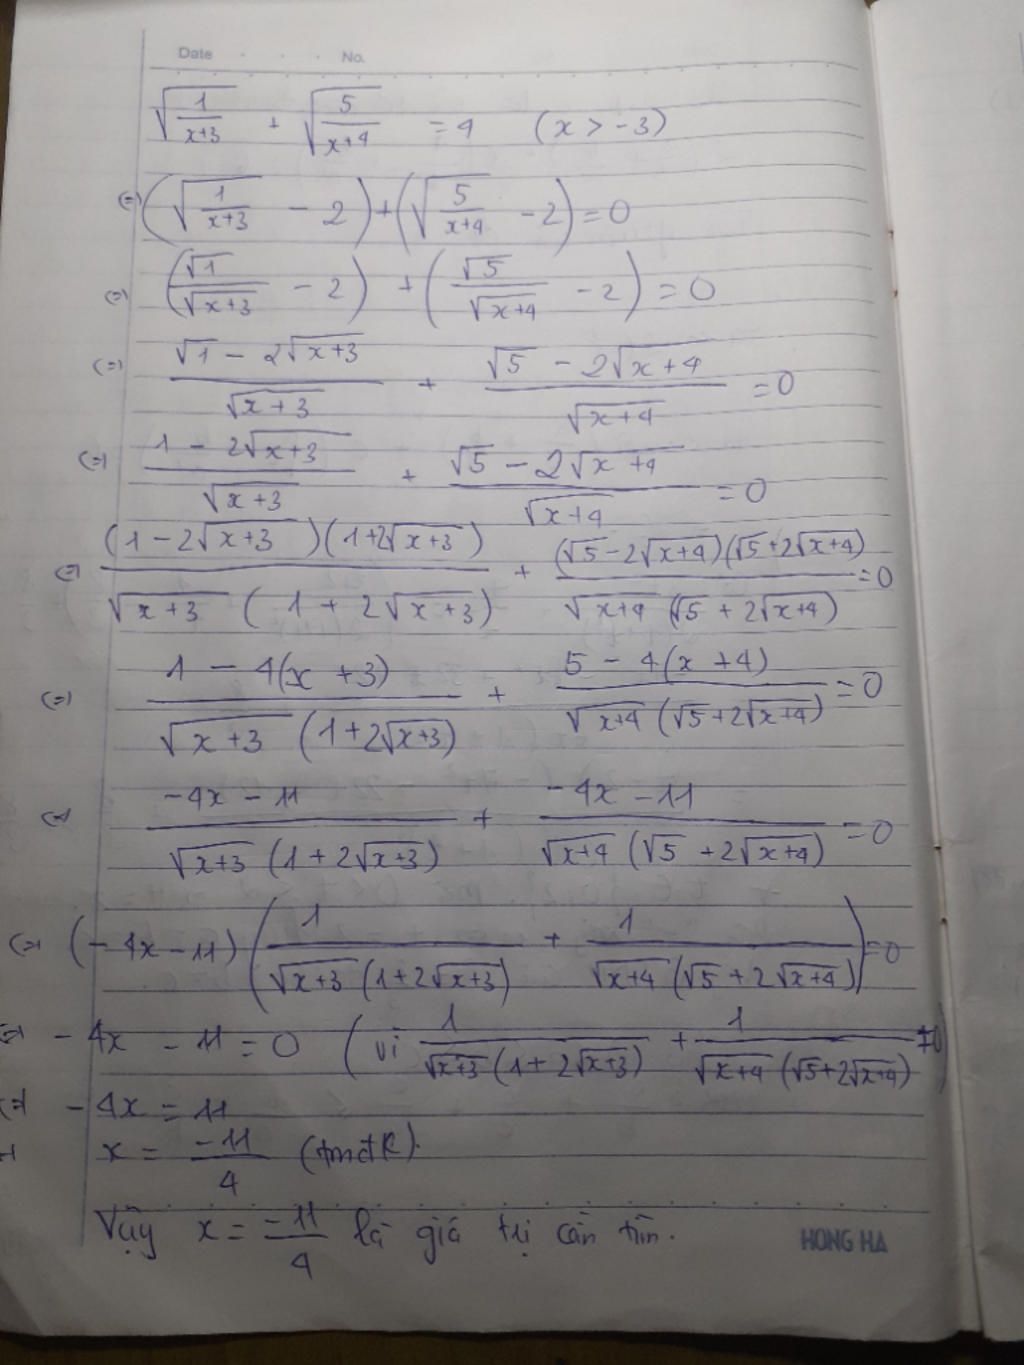 Date . . . No.
√(1/(x+3)) + √(5/(x+4)) = 4 (x > -3)
(=) (√(1/(x+3)) - 2) + (√(5/(x+4)) - 2) = 0
(=) (√1/√(x+3) - 2) + (√5/√(x+4) - 2) = 0
(=) (√1 - 2√(x+3))/√(x+3) + (√5 - 2√(x+4))/√(x+4) = 0
(=) (1 - 2√(x+3))/√(x+3) + (√5 - 2√(x+4))/√(x+4) = 0
(=) (1 - 2√(x+3))(1 + 2√(x+3))/(√(x+3)(1 + 2√(x+3))) + (√5 - 2√(x+4))(√5 + 2√(x+4))/(√(x+4)(√5 + 2√(x+4))) = 0
(=) (1 - 4(x+3))/(√(x+3)(1 + 2√(x+3))) + (5 - 4(x+4))/(√(x+4)(√5 + 2√(x+4))) = 0
(=) (-4x - 11)/(√(x+3)(1 + 2√(x+3))) + (-4x - 11)/(√(x+4)(√5 + 2√(x+4))) = 0
(=) (-4x - 11)(1/(√(x+3)(1 + 2√(x+3))) + 1/(√(x+4)(√5 + 2√(x+4)))) = 0
(=) -4x - 11 = 0 (vì 1/(√(x+3)(1 + 2√(x+3))) + 1/(√(x+4)(√5 + 2√(x+4))) ≠ 0)
(=) -4x = 11
x = -11/4 (tmđk).
Vậy x = -11/4 là giá trị cần tìm.
HONG HA